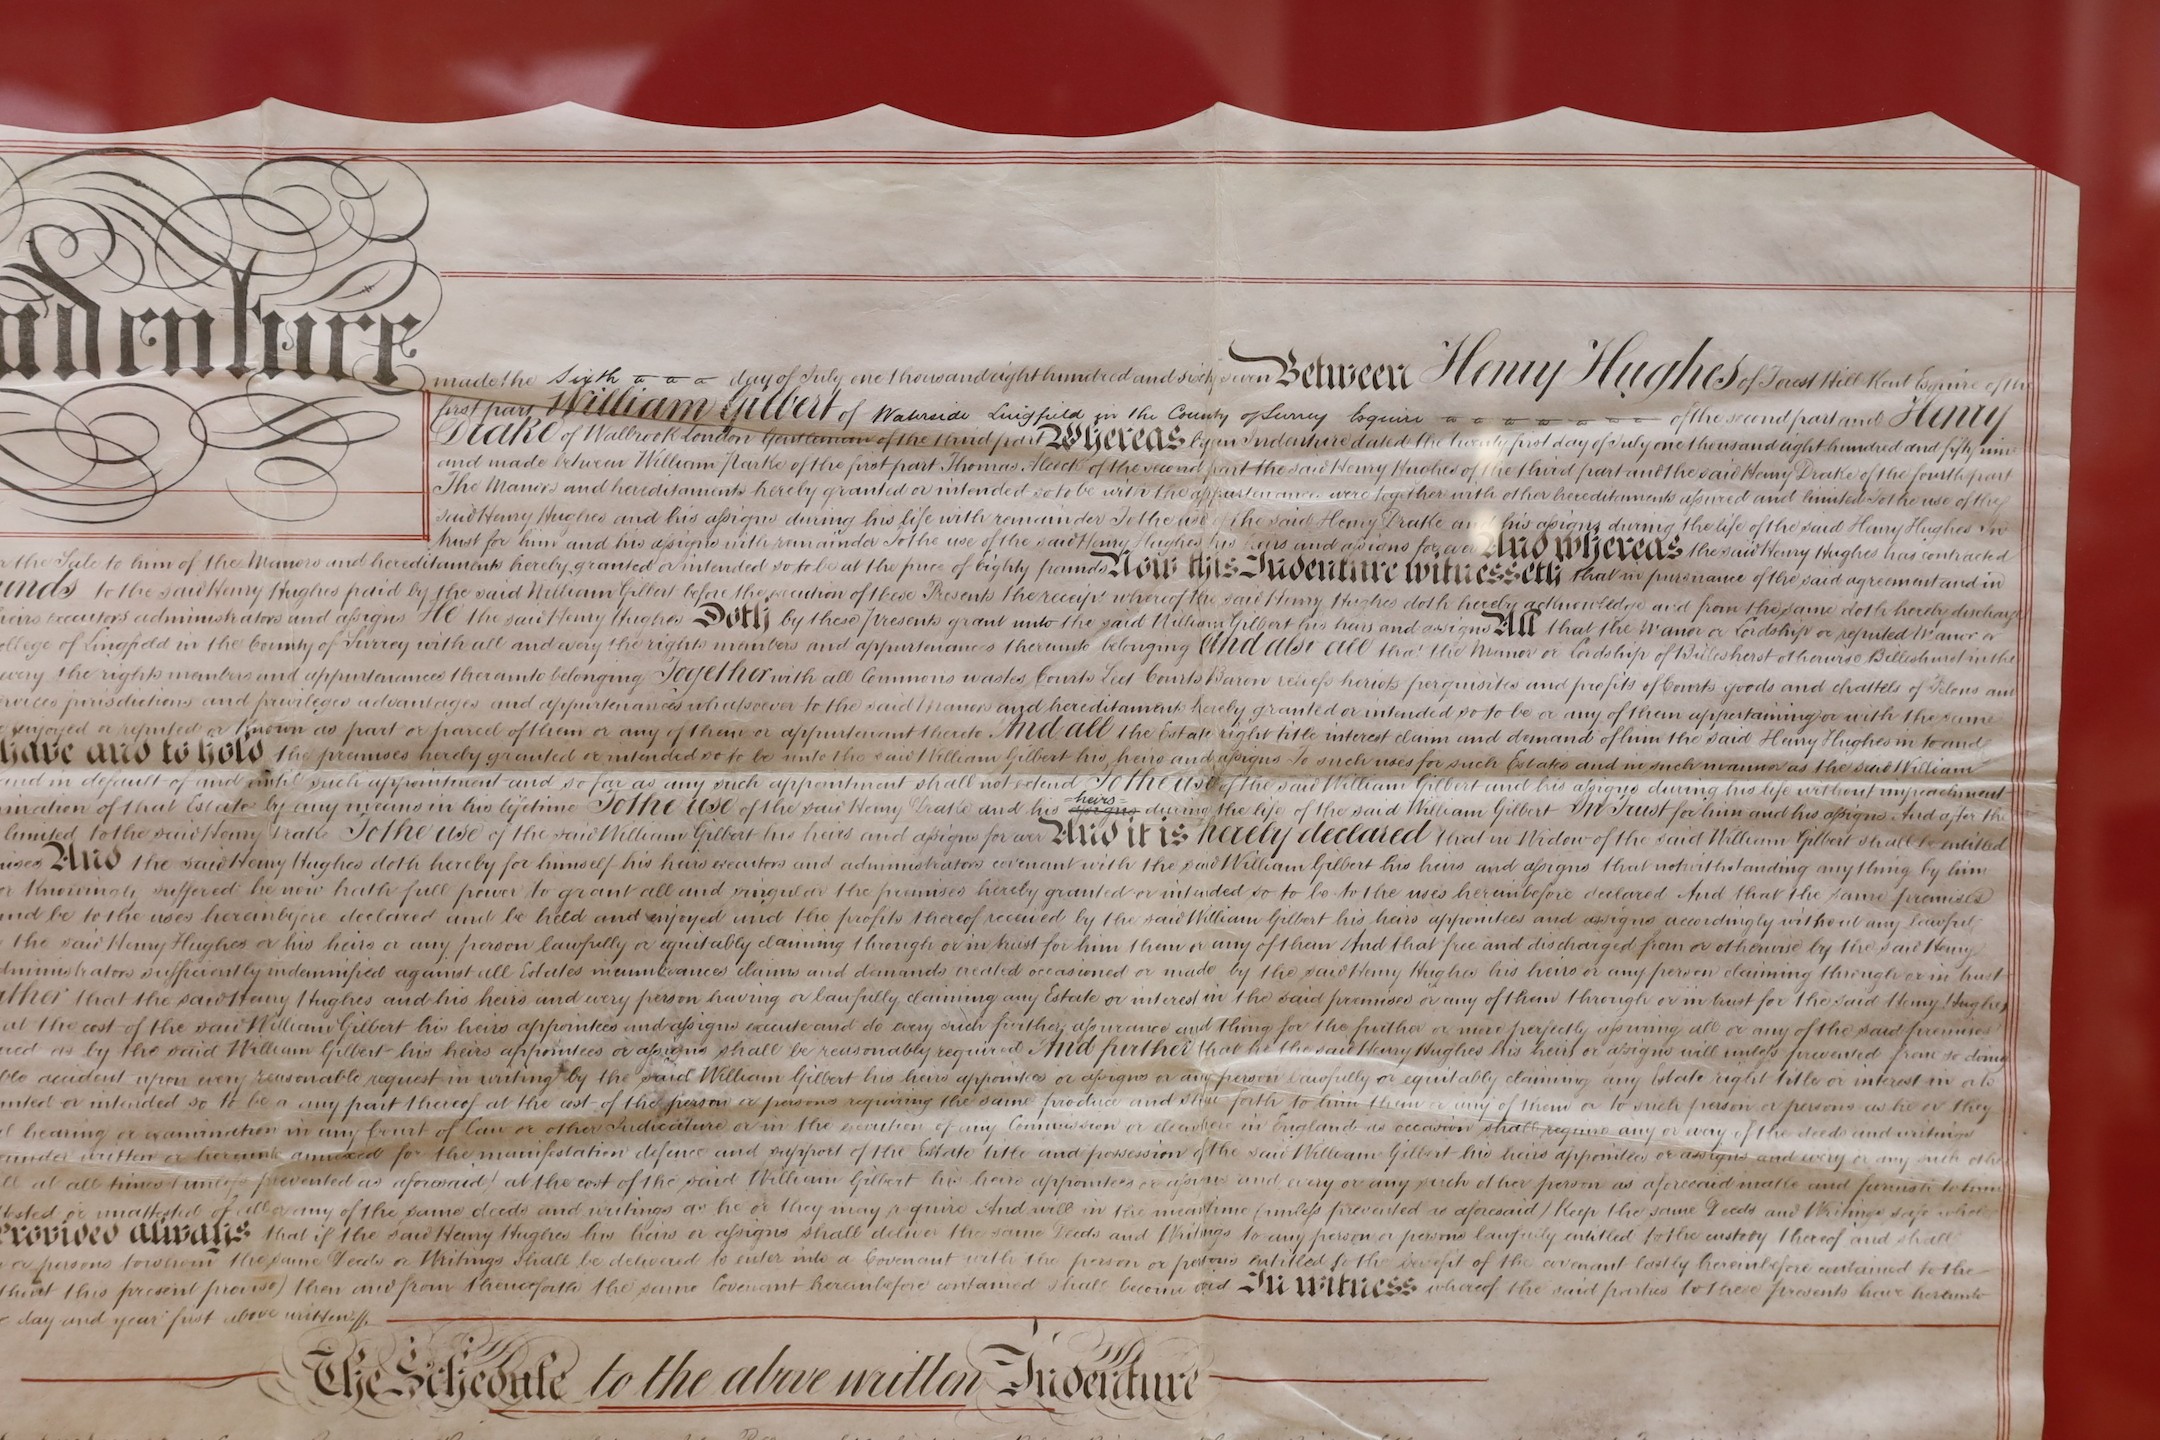 Indenture
made the Sixth day of July one thousand eight hundred and sixty seven Between Henry Hughes of Forest Hill Kent Esquire of the
first part William Gilbert of Waterside Lingfield in the County of Surrey Esquire of the second part and Henry
Drake of Walbrook London Gentleman of the third part Whereas by an Indenture dated the twenty first day of July one thousand eight hundred and fifty nine
and made between William Parke of the first part Thomas Alcock of the second part the said Henry Hughes of the third part and the said Henry Drake of the fourth part
The Manors and hereditaments hereby granted or intended so to be with the appurtenances were together with other hereditaments assured and limited To the use of the
said Henry Hughes and his assigns during his life with remainder To the use of the said Henry Drake and his assigns during the life of the said Henry Hughes In
trust for him and his assigns with remainder To the use of the said Henry Hughes his heirs and assigns for ever And whereas the said Henry Hughes has contracted
the Sale to him of the Manors and hereditaments hereby granted or intended so to be at the price of Eighty pounds Now this Indenture witnesseth that in pursuance of the said agreement and in
unds to the said Henry Hughes paid by the said William Gilbert before the execution of these Presents the receipt whereof the said Henry Hughes doth hereby acknowledge and from the same doth hereby discharge
heirs executors administrators and assigns He the said Henry Hughes Doth by these Presents grant unto the said William Gilbert his heirs and assigns All that the Manor or Lordship or reputed Manor or
ollege of Lingfield in the County of Surrey with all and every the rights members and appurtenances thereunto belonging And also all that the Manor or Lordship of Billesherst otherwise Billeshurst in the
every the rights members and appurtenances thereunto belonging Together with all Commons wastes Courts Leet Courts Baron reliefs heriots perquisites and profits of Courts goods and chattels of Felons and
ervices jurisdictions and privileges advantages and appurtenances whatsoever to the said Manors and hereditaments hereby granted or intended so to be or any of them appertaining or with the same
enjoyed or reputed or known as part or parcel of them or any of them or appurtenant thereto And all the Estate right title interest claim and demand of him the said Henry Hughes in to and
have and to hold the premises hereby granted or intended so to be unto the said William Gilbert his heirs and assigns To such uses for such Estates and in such manner as the said William
and in default of and until such appointment and so far as any such appointment shall not extend To the use of the said William Gilbert and his assigns during his life without impeachment
mination of that Estate by any means in his lifetime To the use of the said Henry Drake and his heirs assigns during the life of the said William Gilbert In Trust for him and his assigns And after the
limited to the said Henry Drake To the use of the said William Gilbert his heirs and assigns for ever And it is hereby declared that no Widow of the said William Gilbert shall be entitled
mises And the said Henry Hughes doth hereby for himself his heirs executors and administrators covenant with the said William Gilbert his heirs and assigns that notwithstanding any thing by him
or knowingly suffered he now hath full power to grant all and singular the premises hereby granted or intended so to be to the uses hereinbefore declared And that the same premises
and be to the uses hereinbefore declared and be held and enjoyed and the profits thereof received by the said William Gilbert his heirs appointees and assigns accordingly without any lawful
the said Henry Hughes or his heirs or any person lawfully or equitably claiming through or in trust for him them or any of them And that free and discharged from or otherwise by the said Henry
dministrators sufficiently indemnified against all Estates incumbrances claims and demands created occasioned or made by the said Henry Hughes his heirs or any person claiming through or in trust
ther that the said Henry Hughes and his heirs and every person having or lawfully claiming any Estate or interest in the said premises or any of them through or in trust for the said Henry Hughes
at the cost of the said William Gilbert his heirs appointees and assigns execute and do every such further assurance and thing for the further or more perfectly assuring all or any of the said premises
ired as by the said William Gilbert his heirs appointees or assigns shall be reasonably required And further that he the said Henry Hughes his heirs or assigns will unless prevented from so doing
ble accident upon every reasonable request in writing by the said William Gilbert his heirs appointees or assigns or any person lawfully or equitably claiming any Estate right title or interest in or to
anted or intended so to be or any part thereof at the cost of the person or persons requiring the same produce and shew forth to him them or any of them or to such person or persons as he or they
hearing or examination in any Court of Law or other Judicature or in the execution of any Commission or elsewhere in England as occasion shall require any or every of the deeds and writings
eunder written or hereunto annexed for the manifestation defence and support of the Estate title and possession of the said William Gilbert his heirs appointees or assigns and every or any such other
ll at all times (unless prevented as aforesaid) at the cost of the said William Gilbert his heirs appointees or assigns and every or any such other person as aforesaid make and furnish to him
ttested or unattested of all or any of the same deeds and writings as he or they may require And will in the meantime (unless prevented as aforesaid) keep the same Deeds and Writings safe whole
Provided always that if the said Henry Hughes his heirs or assigns shall deliver the same Deeds and Writings to any person or persons lawfully entitled to the custody thereof and shall
or persons to whom the same Deeds or Writings shall be delivered to enter into a Covenant with the person or persons entitled to the benefit of the covenant lastly hereinbefore contained to the
this present proviso) then and from thenceforth the same Covenant hereinbefore contained shall become void In witness whereof the said parties to these presents have hereunto
day and year first above written
The Schedule to the above written Indenture